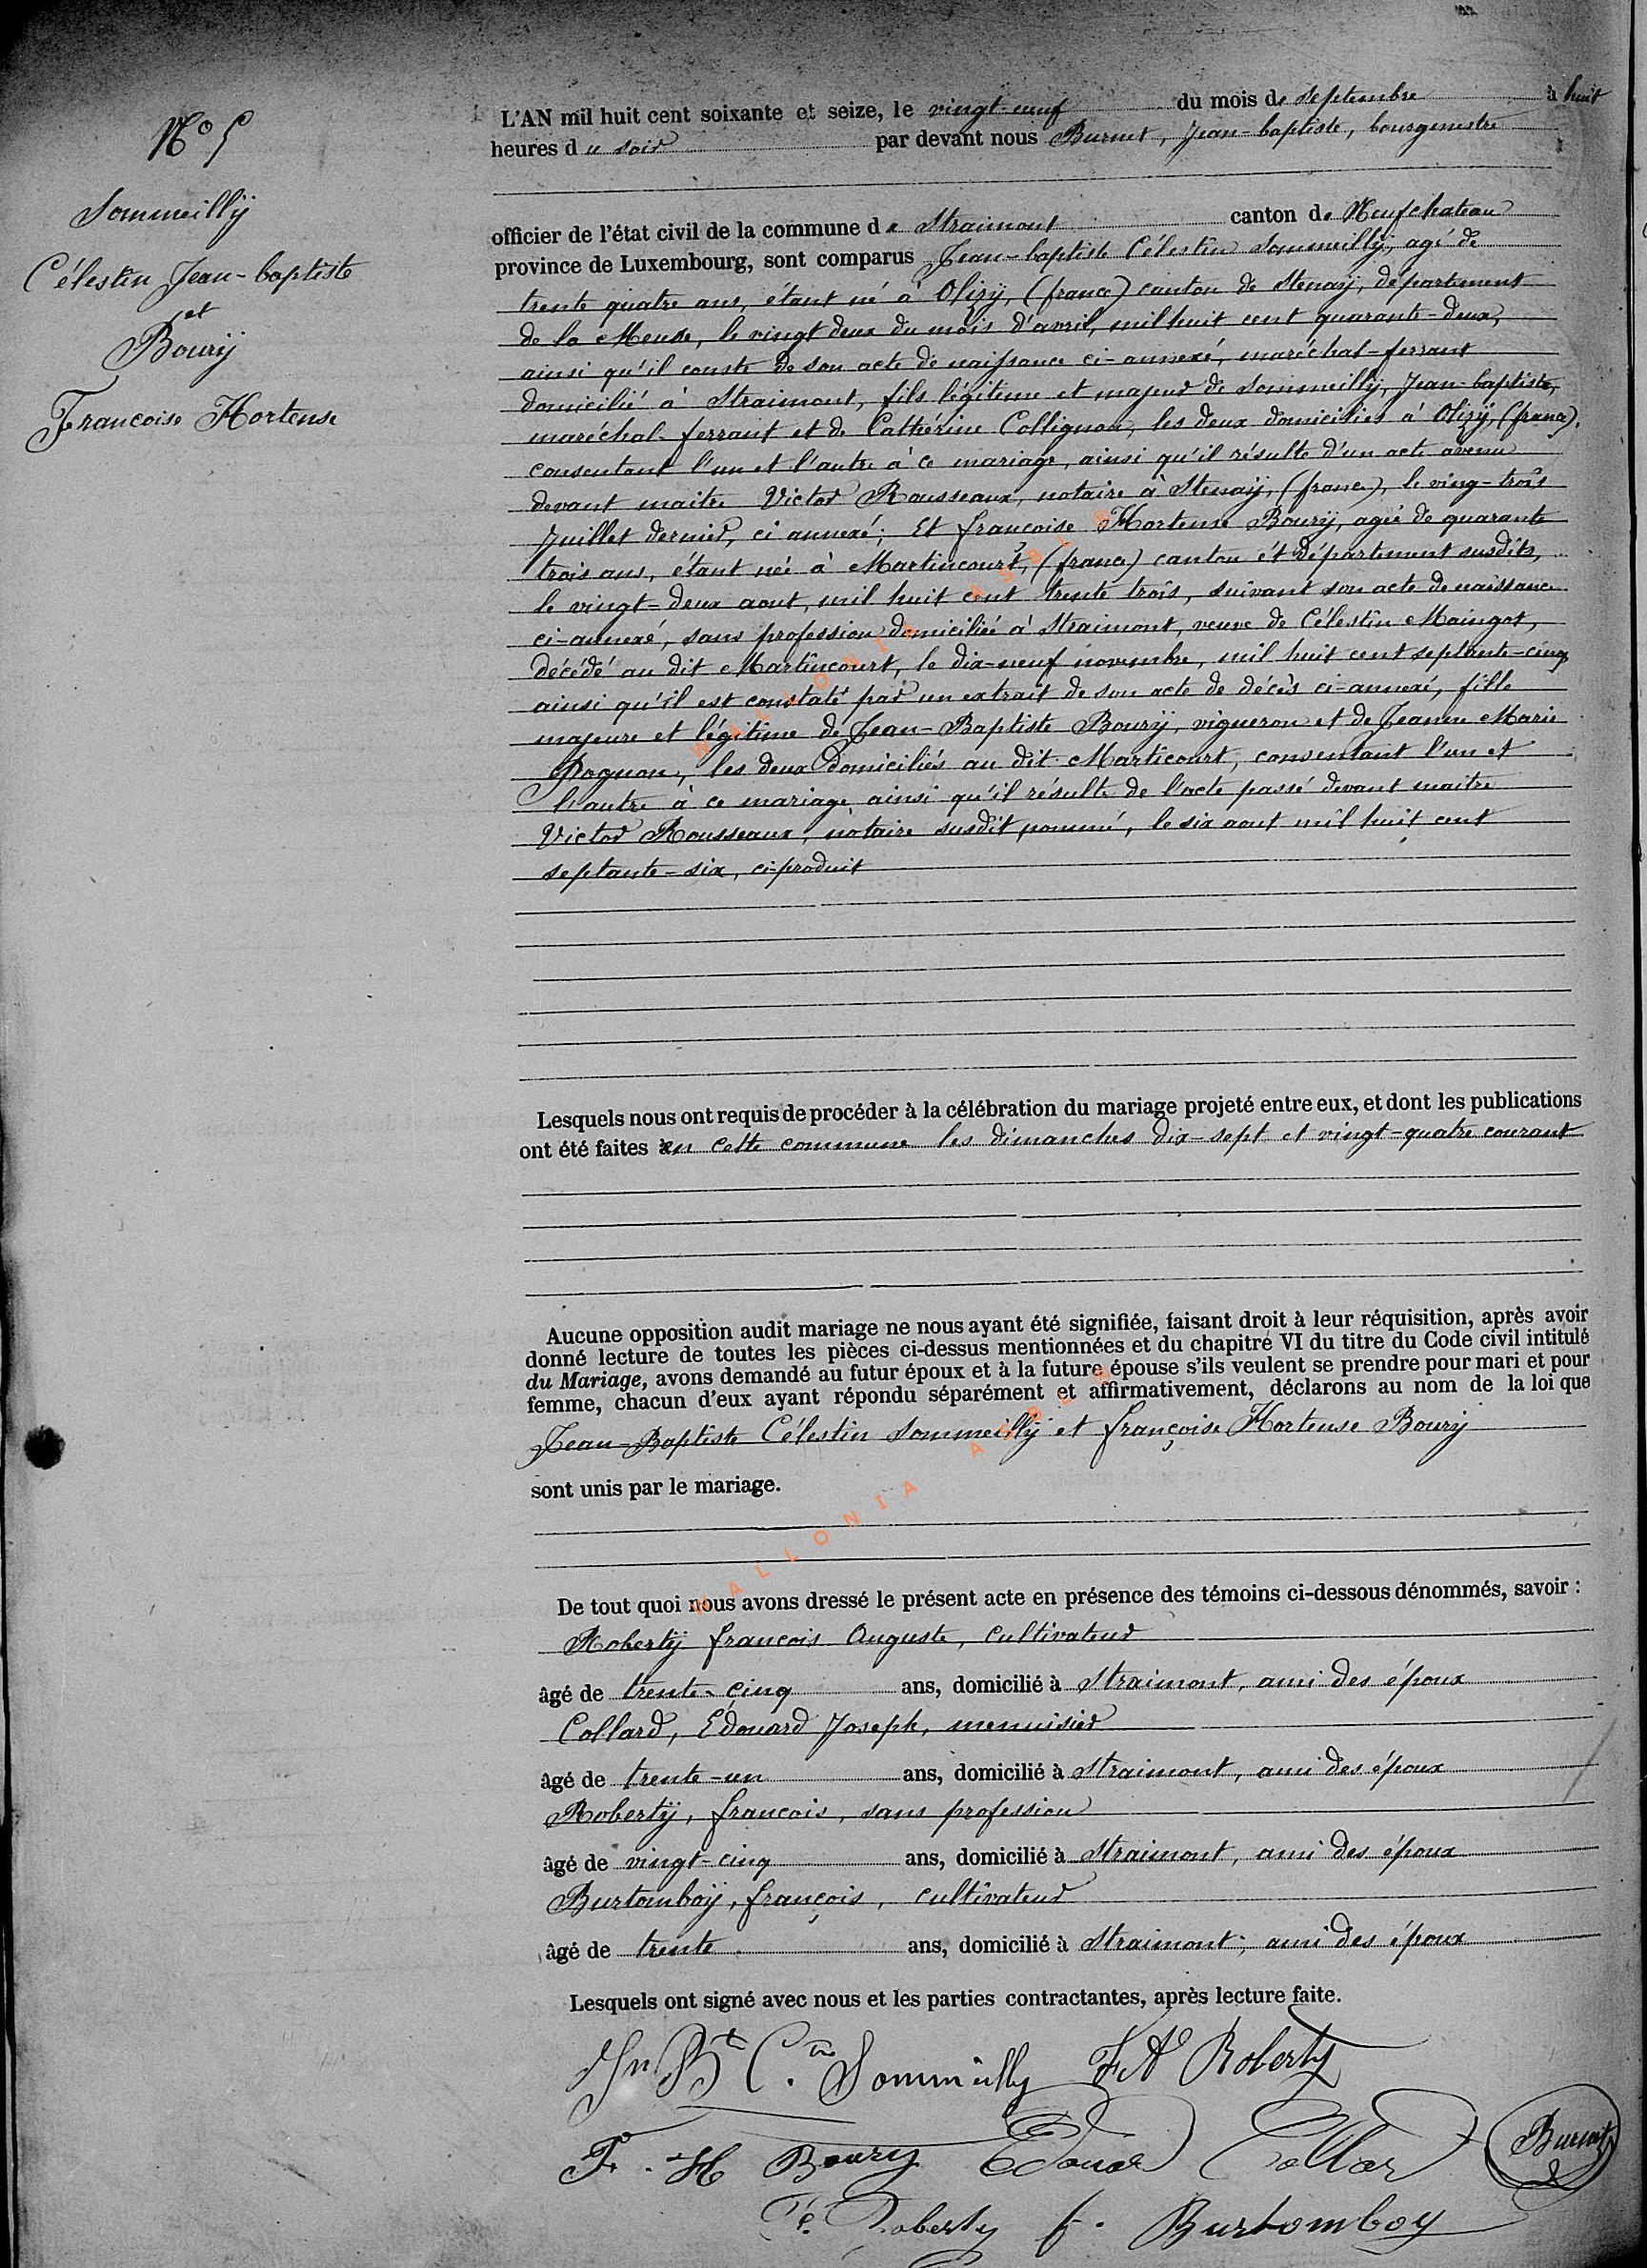 N° 5
Sommeillÿ
Célestin Jean-baptiste
et
Bourÿ
Francoise Hortense
L'AN mil huit cent soixante et seize, le vingt-neuf du mois de septembre à huit
heures du soir par devant nous Burnet, Jean-baptiste, bourgmestre
officier de l'état civil de la commune de Straimont canton de Neufchateau
province de Luxembourg, sont comparus Jean-baptiste Célestin Sommeillÿ, agé de
trente quatre ans, étant né à Olizÿ, (france) canton de Stenaÿ, département
de la Meuse, le vingt deux du mois d'avril, mil huit cent quarante-deux,
ainsi qu'il conste de son acte de naissance ci-annexé, maréchal-ferrant
domicilié à Straimont, fils légitime et majeur de Sommeillÿ, Jean-baptiste,
maréchal-ferrant et de Cathérine Collignon, les deux domiciliés à Olizÿ, (france),
consentant l'un et l'autre à ce mariage, ainsi qu'il résulte d'un acte avenu
devant maitre Victor Rousseaux, notaire à Stenaÿ, (france), le ving-trois
Juillet dernier, ci annexé; Et francoise Hortense Bourÿ, agée de quarante
trois ans, étant née à Martincourt, (france) canton et département susdits,
le vingt-deux aout, mil huit cent trente trois, suivant son acte de naissance
ci-annexé, sans profession domiciliée à Straimont, veuve de Célestin Maingot,
décédé au dit Martincourt, le dix-neuf novembre, mil huit cent septante-cinq
ainsi qu'il est constaté par un extrait de son acte de décès ci-annexé, fille
majeure et légitime de Jean-Baptiste Bourÿ, vigneron et de Jeanne Marie
Pognon, les deux domiciliés au dit Marticourt, consentant l'un et
l'autre à ce mariage ainsi qu'il résulte de l'acte passé devant maitre
Victor Rousseaux, notaire susdit nommé, le six aout mil huit cent
septante-six, ci-produit
Lesquels nous ont requis de procéder à la célébration du mariage projeté entre eux, et dont les publications
ont été faites en cette commune les dimanches dix-sept et vingt-quatre courant
Aucune opposition audit mariage ne nous ayant été signifiée, faisant droit à leur réquisition, après avoir
donné lecture de toutes les pièces ci-dessus mentionnées et du chapitre VI du titre du Code civil intitulé
du Mariage, avons demandé au futur époux et à la future épouse s'ils veulent se prendre pour mari et pour
femme, chacun d'eux ayant répondu séparément et affirmativement, déclarons au nom de la loi que
Jean-Baptiste Célestin Sommeillÿ et françoise Hortense Bourÿ
sont unis par le mariage.
De tout quoi nous avons dressé le présent acte en présence des témoins ci-dessous dénommés, savoir :
Robertÿ francois Auguste, cultivateur
âgé de trente-cinq ans, domicilié à Straimont, ami des époux
Collard, Edouard Joseph, menuisier
âgé de trente-un ans, domicilié à Straimont, ami des époux
Robertÿ, francois, sans profession
âgé de vingt-cinq ans, domicilié à Straimont, ami des époux
Burtomboÿ, françois, cultivateur
âgé de trente ans, domicilié à Straimont, ami des époux
Lesquels ont signé avec nous et les parties contractantes, après lecture faite.
Jn Bte C.in Sommeilly F A Roberty
F. H Boury Edouar Collar Burnet
Roberty f. Burtomboy
WALLONIA ASBL
WALLONIA ASBL